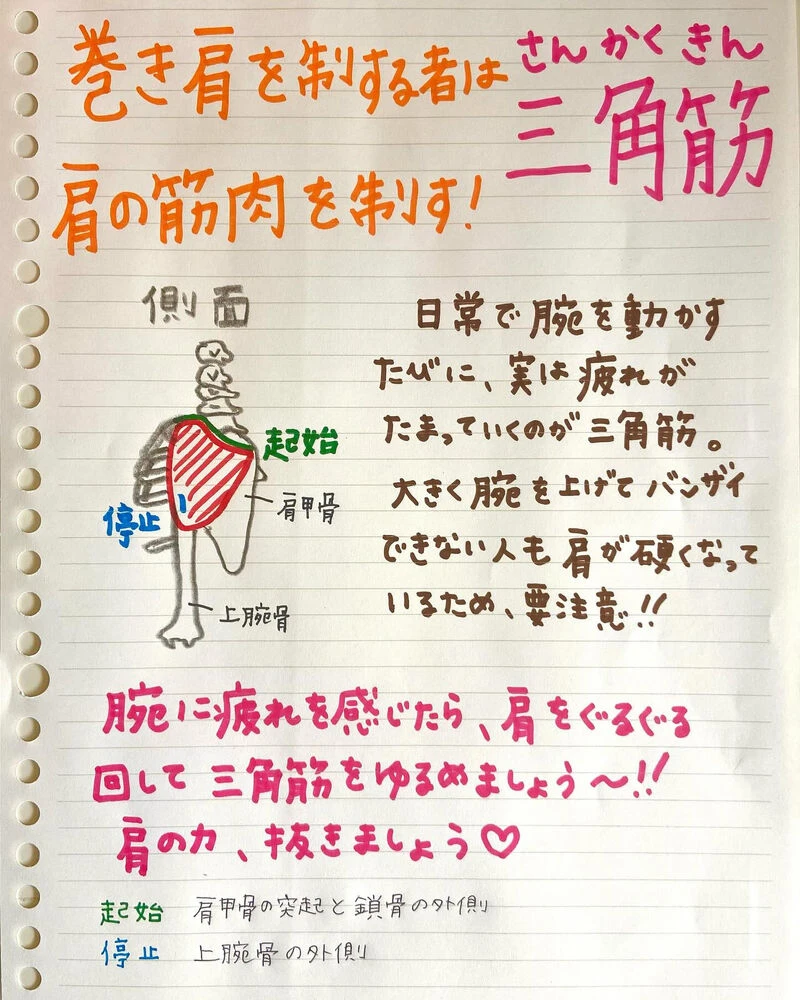 巻き肩を制する者は
さんかくきん
三角筋
肩の筋肉を制す!
側面
起始
肩甲骨
停止
上腕骨
日常で腕を動かす
たびに、実は疲れが
たまっていくのが三角筋。
大きく腕を上げてバンザイ
できない人も肩が硬くなって
いるため、要注意!!
腕に疲れを感じたら、肩をぐるぐる
回して三角筋をゆるめましょう〜!!
肩の力、抜きましょう♡
起始 肩甲骨の突起と鎖骨の外側
停止 上腕骨の外側